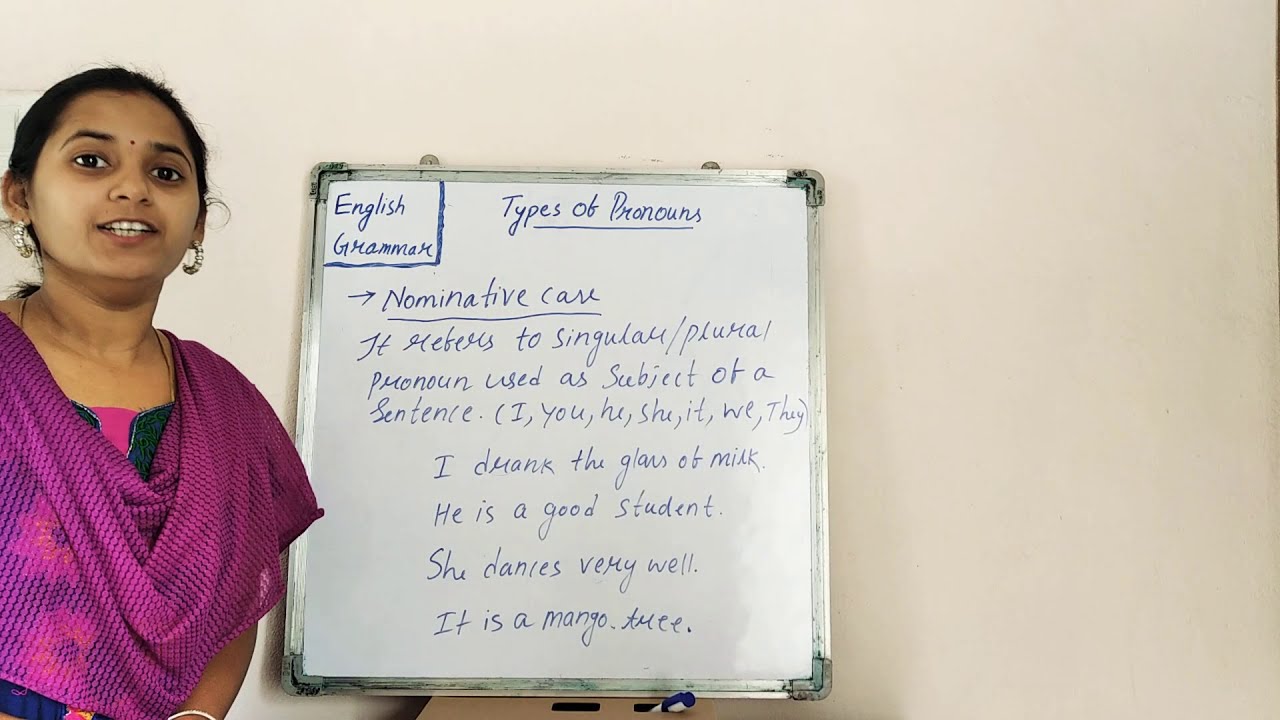 English
Grammar
Types of Pronouns
→ Nominative case
It refers to singular/plural
pronoun used as Subject of a
Sentence. (I, you, he, she, it, we, They)
I drank the glass of milk.
He is a good student.
She dances very well.
It is a mango tree.